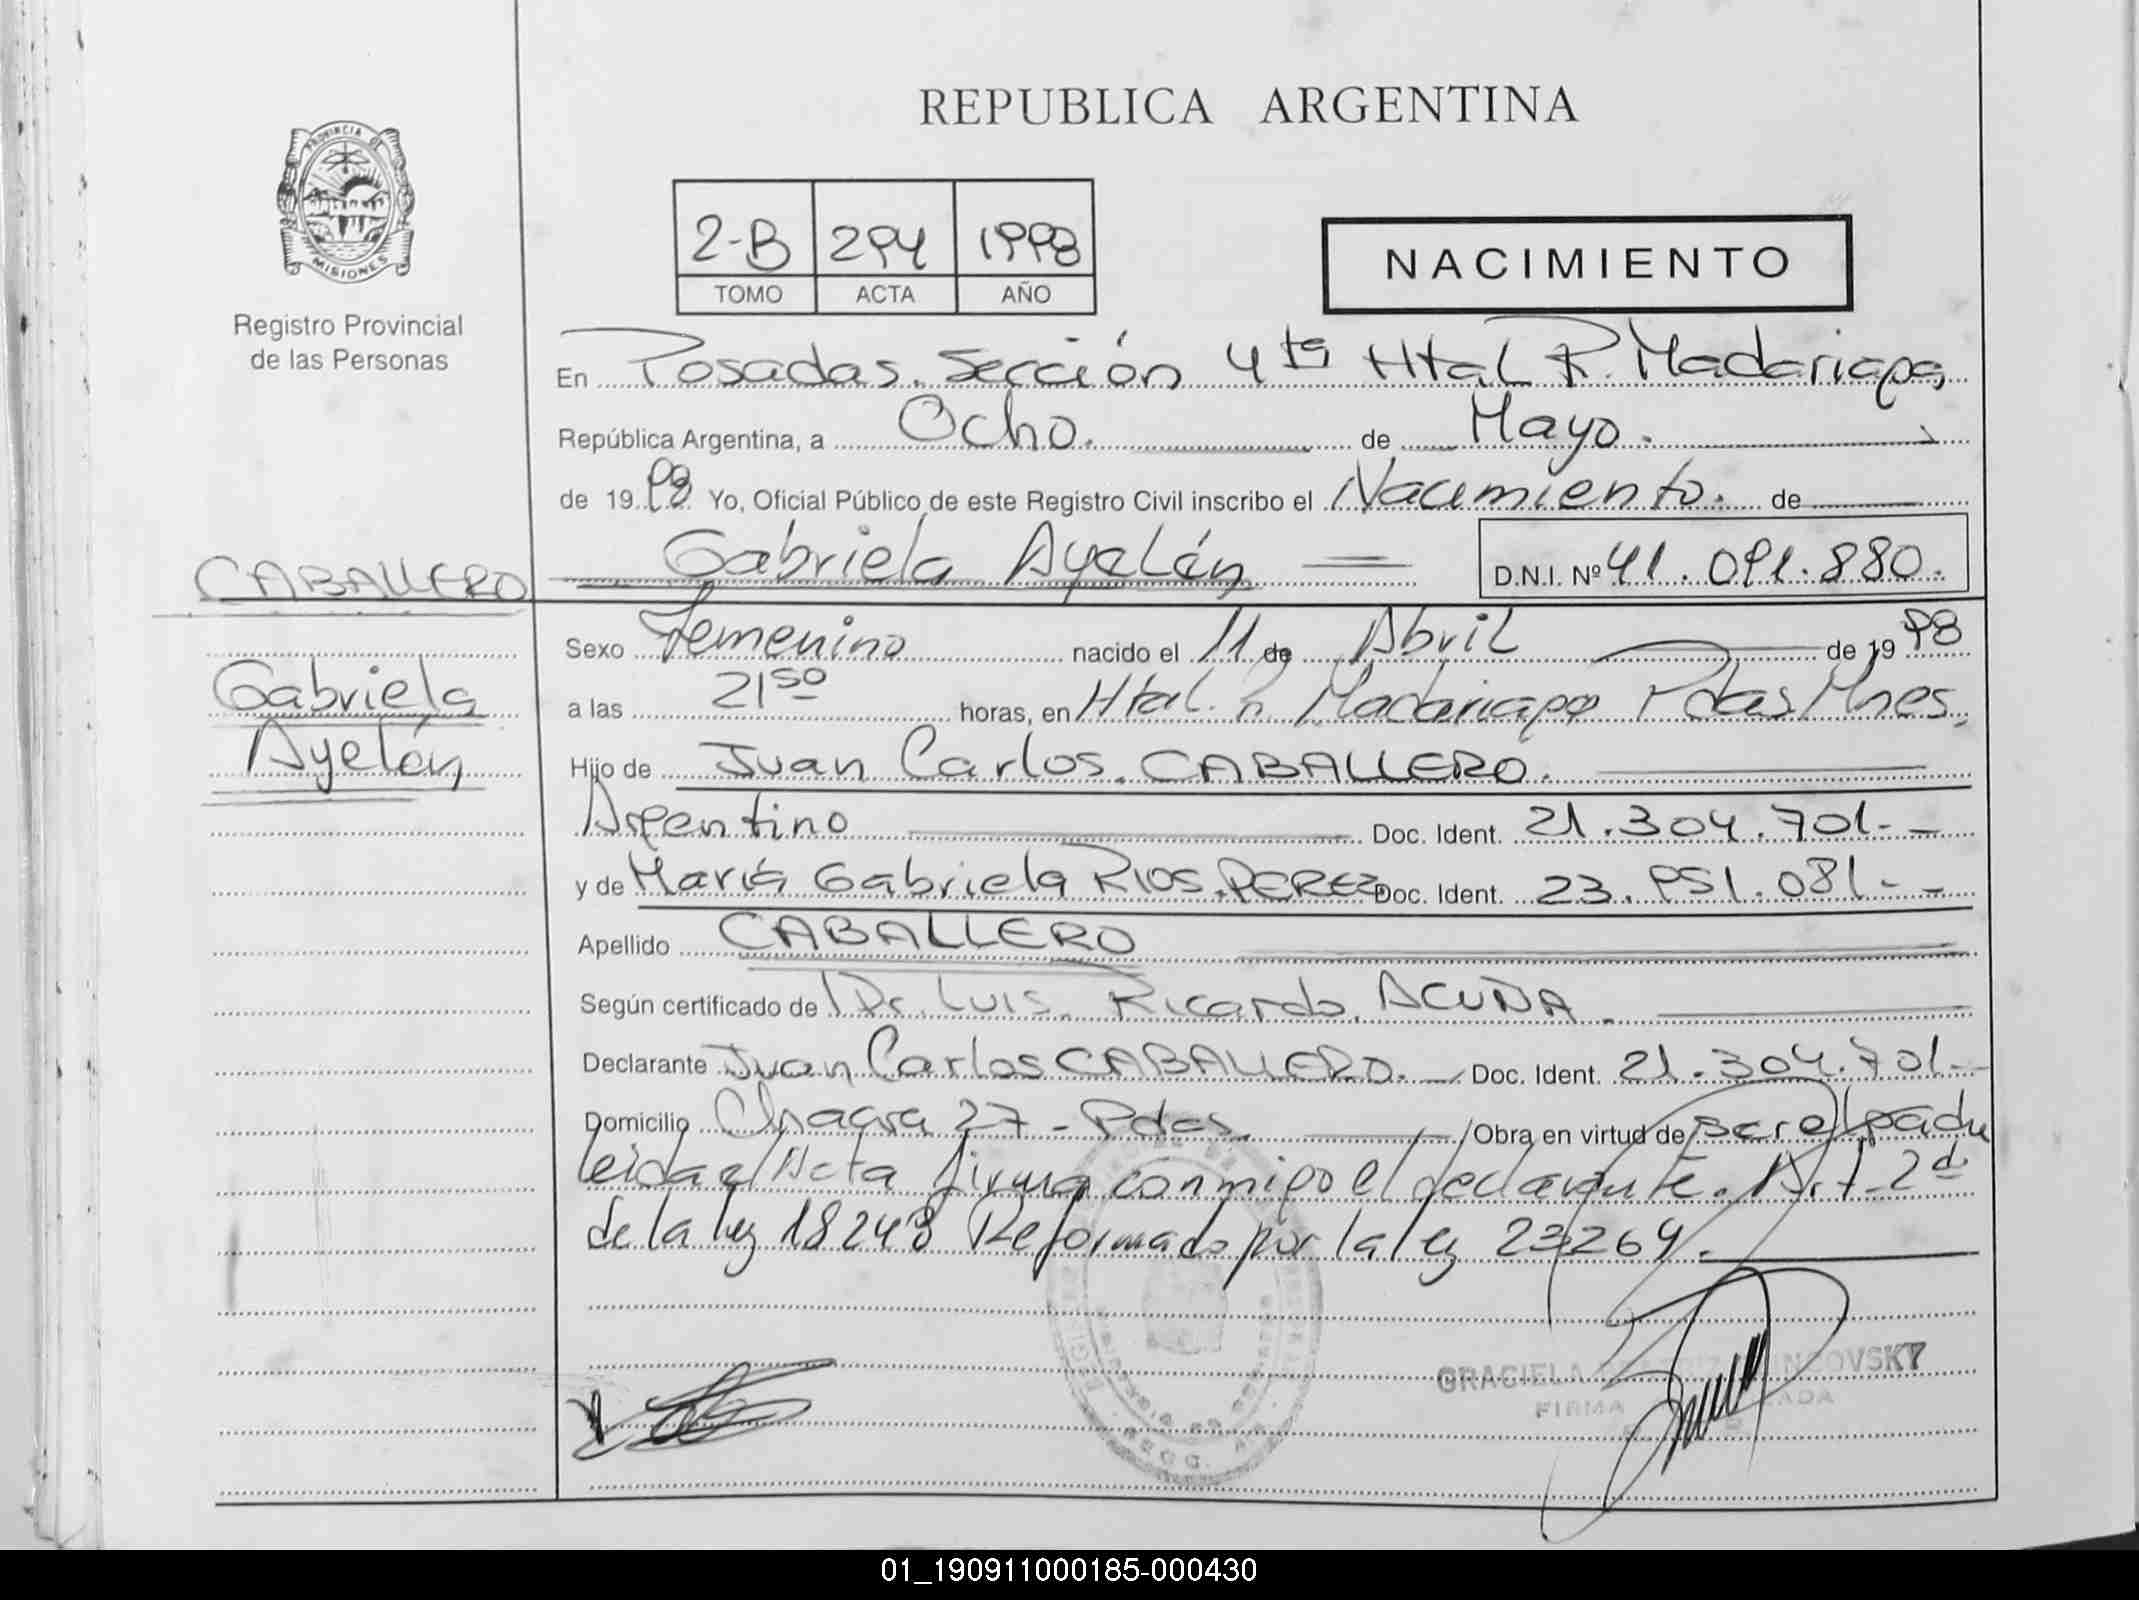 REPUBLICA ARGENTINA
PROVINCIA DE MISIONES
Registro Provincial
de las Personas
2-B 294 1998
TOMO ACTA AÑO
NACIMIENTO
En Posadas. Sección 4ta Htal R. Madariaga,
República Argentina, a Ocho. de Mayo.
de 1998 Yo, Oficial Público de este Registro Civil inscribo el Nacimiento. de
Gabriela Ayelén D.N.I. Nº 41.091.880.
CABALLERO
Gabriela
Ayelén
Sexo Femenino nacido el 11 de Abril de 1998
a las 21 50 horas, en Htal. R. Madariaga Pdas Mnes.
Hijo de Juan Carlos. CABALLERO.
Argentino Doc. Ident. 21.304.701.-
y de María Gabriela RIOS. PEREZ Doc. Ident. 23.951.081.-
Apellido CABALLERO
Según certificado de Dr. Luis. Ricardo. ACUÑA.
Declarante Juan Carlos CABALLERO. Doc. Ident. 21.304.701.-
Domicilio Chacra 27 - Pdas. Obra en virtud de ser el padre
leida el Acta firma conmigo el declarante. Art 2do
de la ley 18248 Reformado por la ley 23264.
GRACIELA
FIRMA
01_190911000185-000430